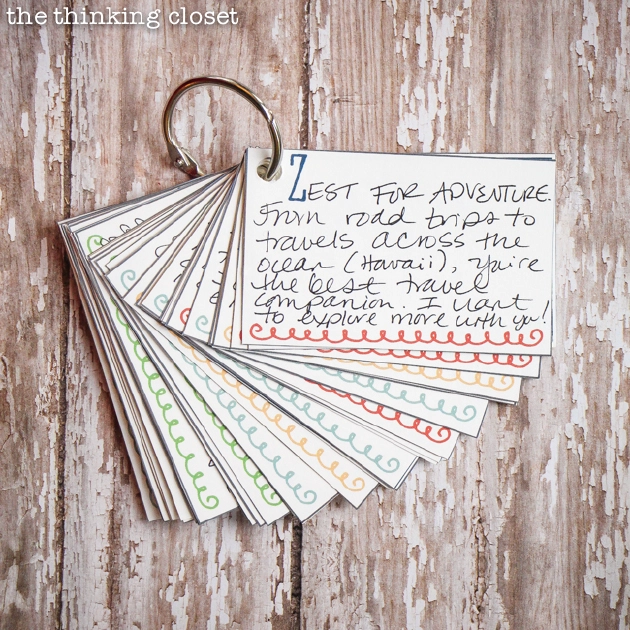 the thinking closet
ZEST FOR ADVENTURE.
From road trips to
travels across the
ocean (Hawaii), you're
the best travel
companion. I want
to explore more with you!